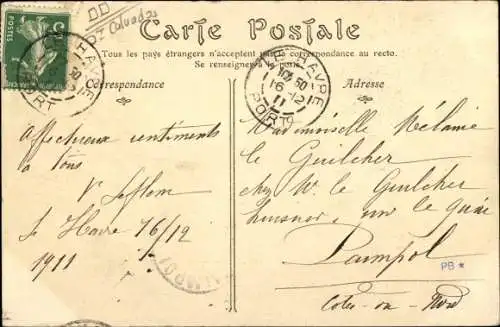 Calvados
Carte Postale
Tous les pays étrangers n'acceptent pas la correspondance au recto.
Se renseigner à la poste.
5
POSTES
LE HAVRE
PORT
LE HAVRE
16 -12
11
PORT
Correspondance
Affectueux sentiments
à tous
Le Havre 16/12
1911
Adresse
Mademoiselle Mélanie
le Guilcher
chez Mr le Guilcher
huissier, sur le quai
Paimpol
Côtes-du-Nord
PB *